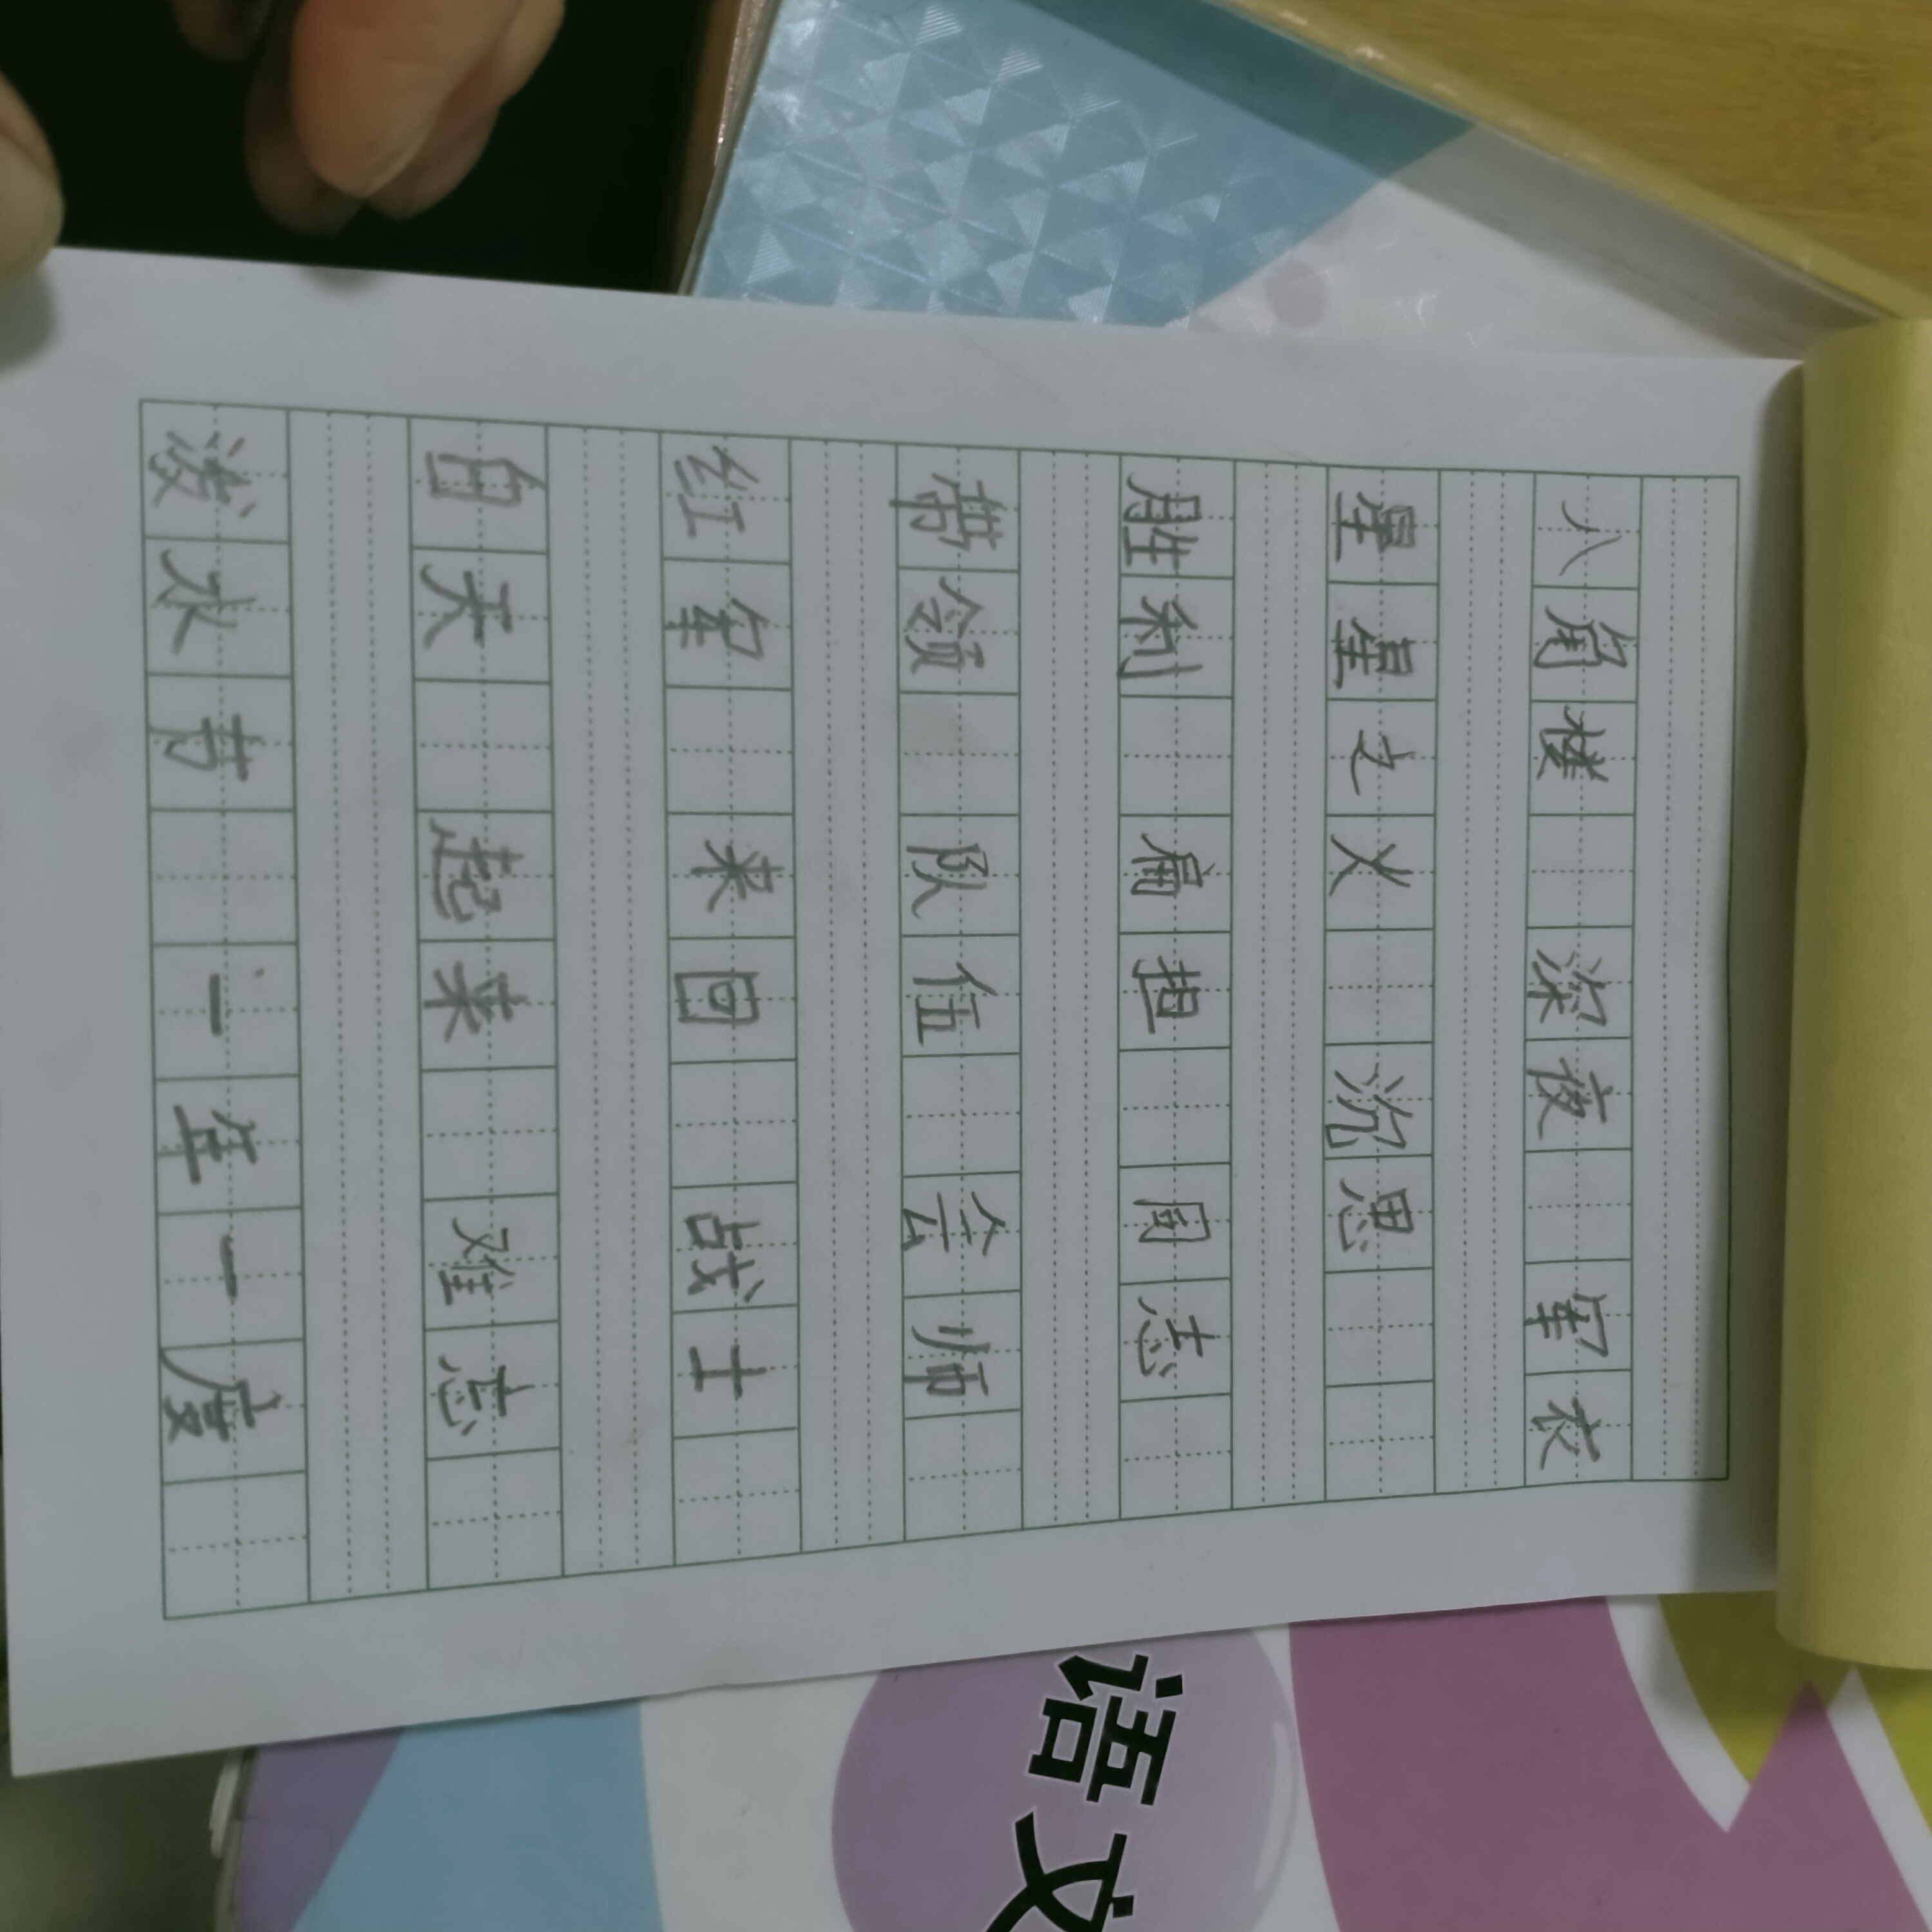 八角楼 深夜 军衣
星星之火 沉思
胜利 扁担 同志
带领 队伍 会师
红军 来回 战士
白天 起来 难忘
泼水节 一年一度
语文